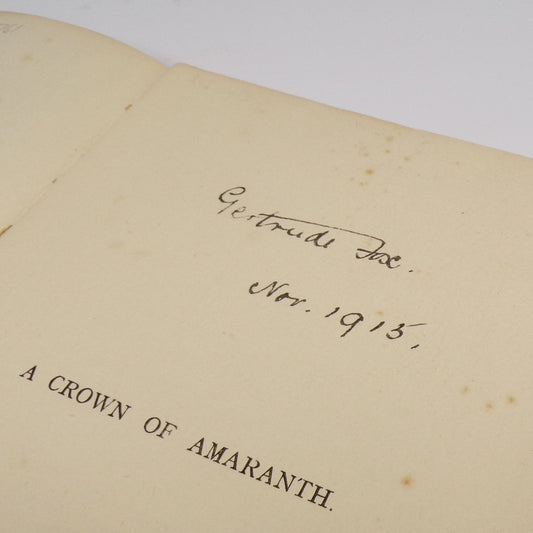 Gertrude Fox.
Nov. 1915.
A CROWN OF AMARANTH.